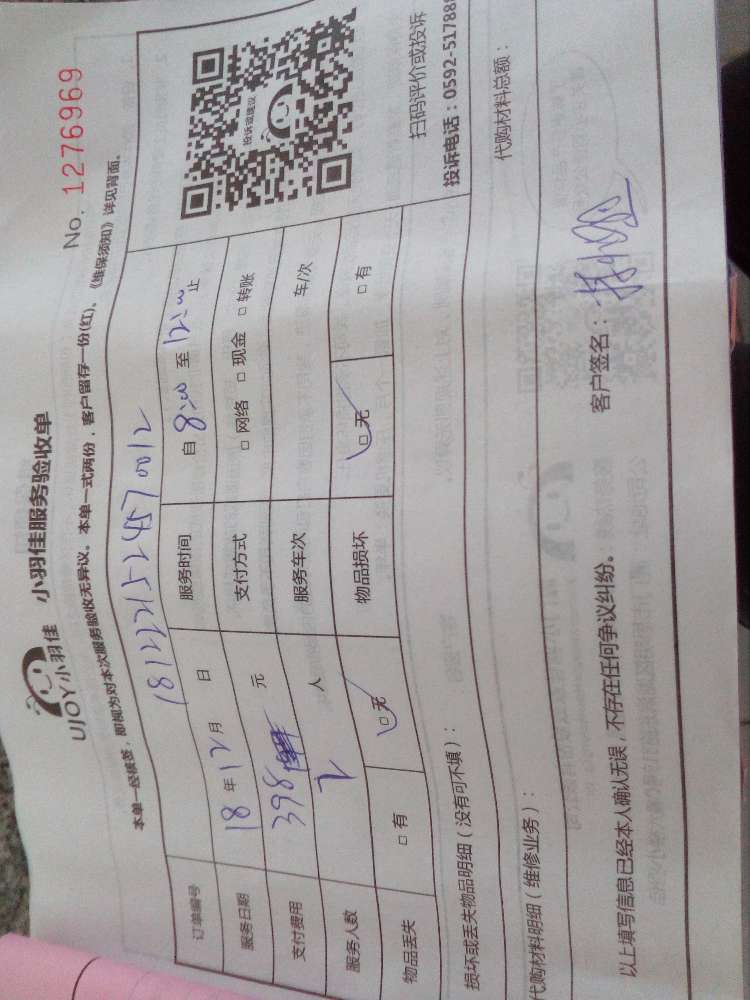 UJOY小羽佳 小羽佳服务验收单
No. 1276969
本单一经核签，即视为对本次服务验收无异议。本单一式两份，客户留存一份(红)、《维保须知》详见背面。
订单编号 181221524570012
服务日期 18年12月 日 服务时间 自 8:00 至 12:00 止
支付费用 398 元 支付方式 □ 网络 □ 现金 □ 转账
服务人数 2 人 服务车次 车/次
物品丢失 □ 有 □ 无 物品损坏 □ 无 □ 有
投诉或建议
扫码评价或投诉
投诉电话：0592-51788
损坏或丢失物品明细（没有可不填）：
代购材料明细（维修业务）： 代购材料总额：
以上填写信息已经本人确认无误，不存在任何争议纠纷。 客户签名：